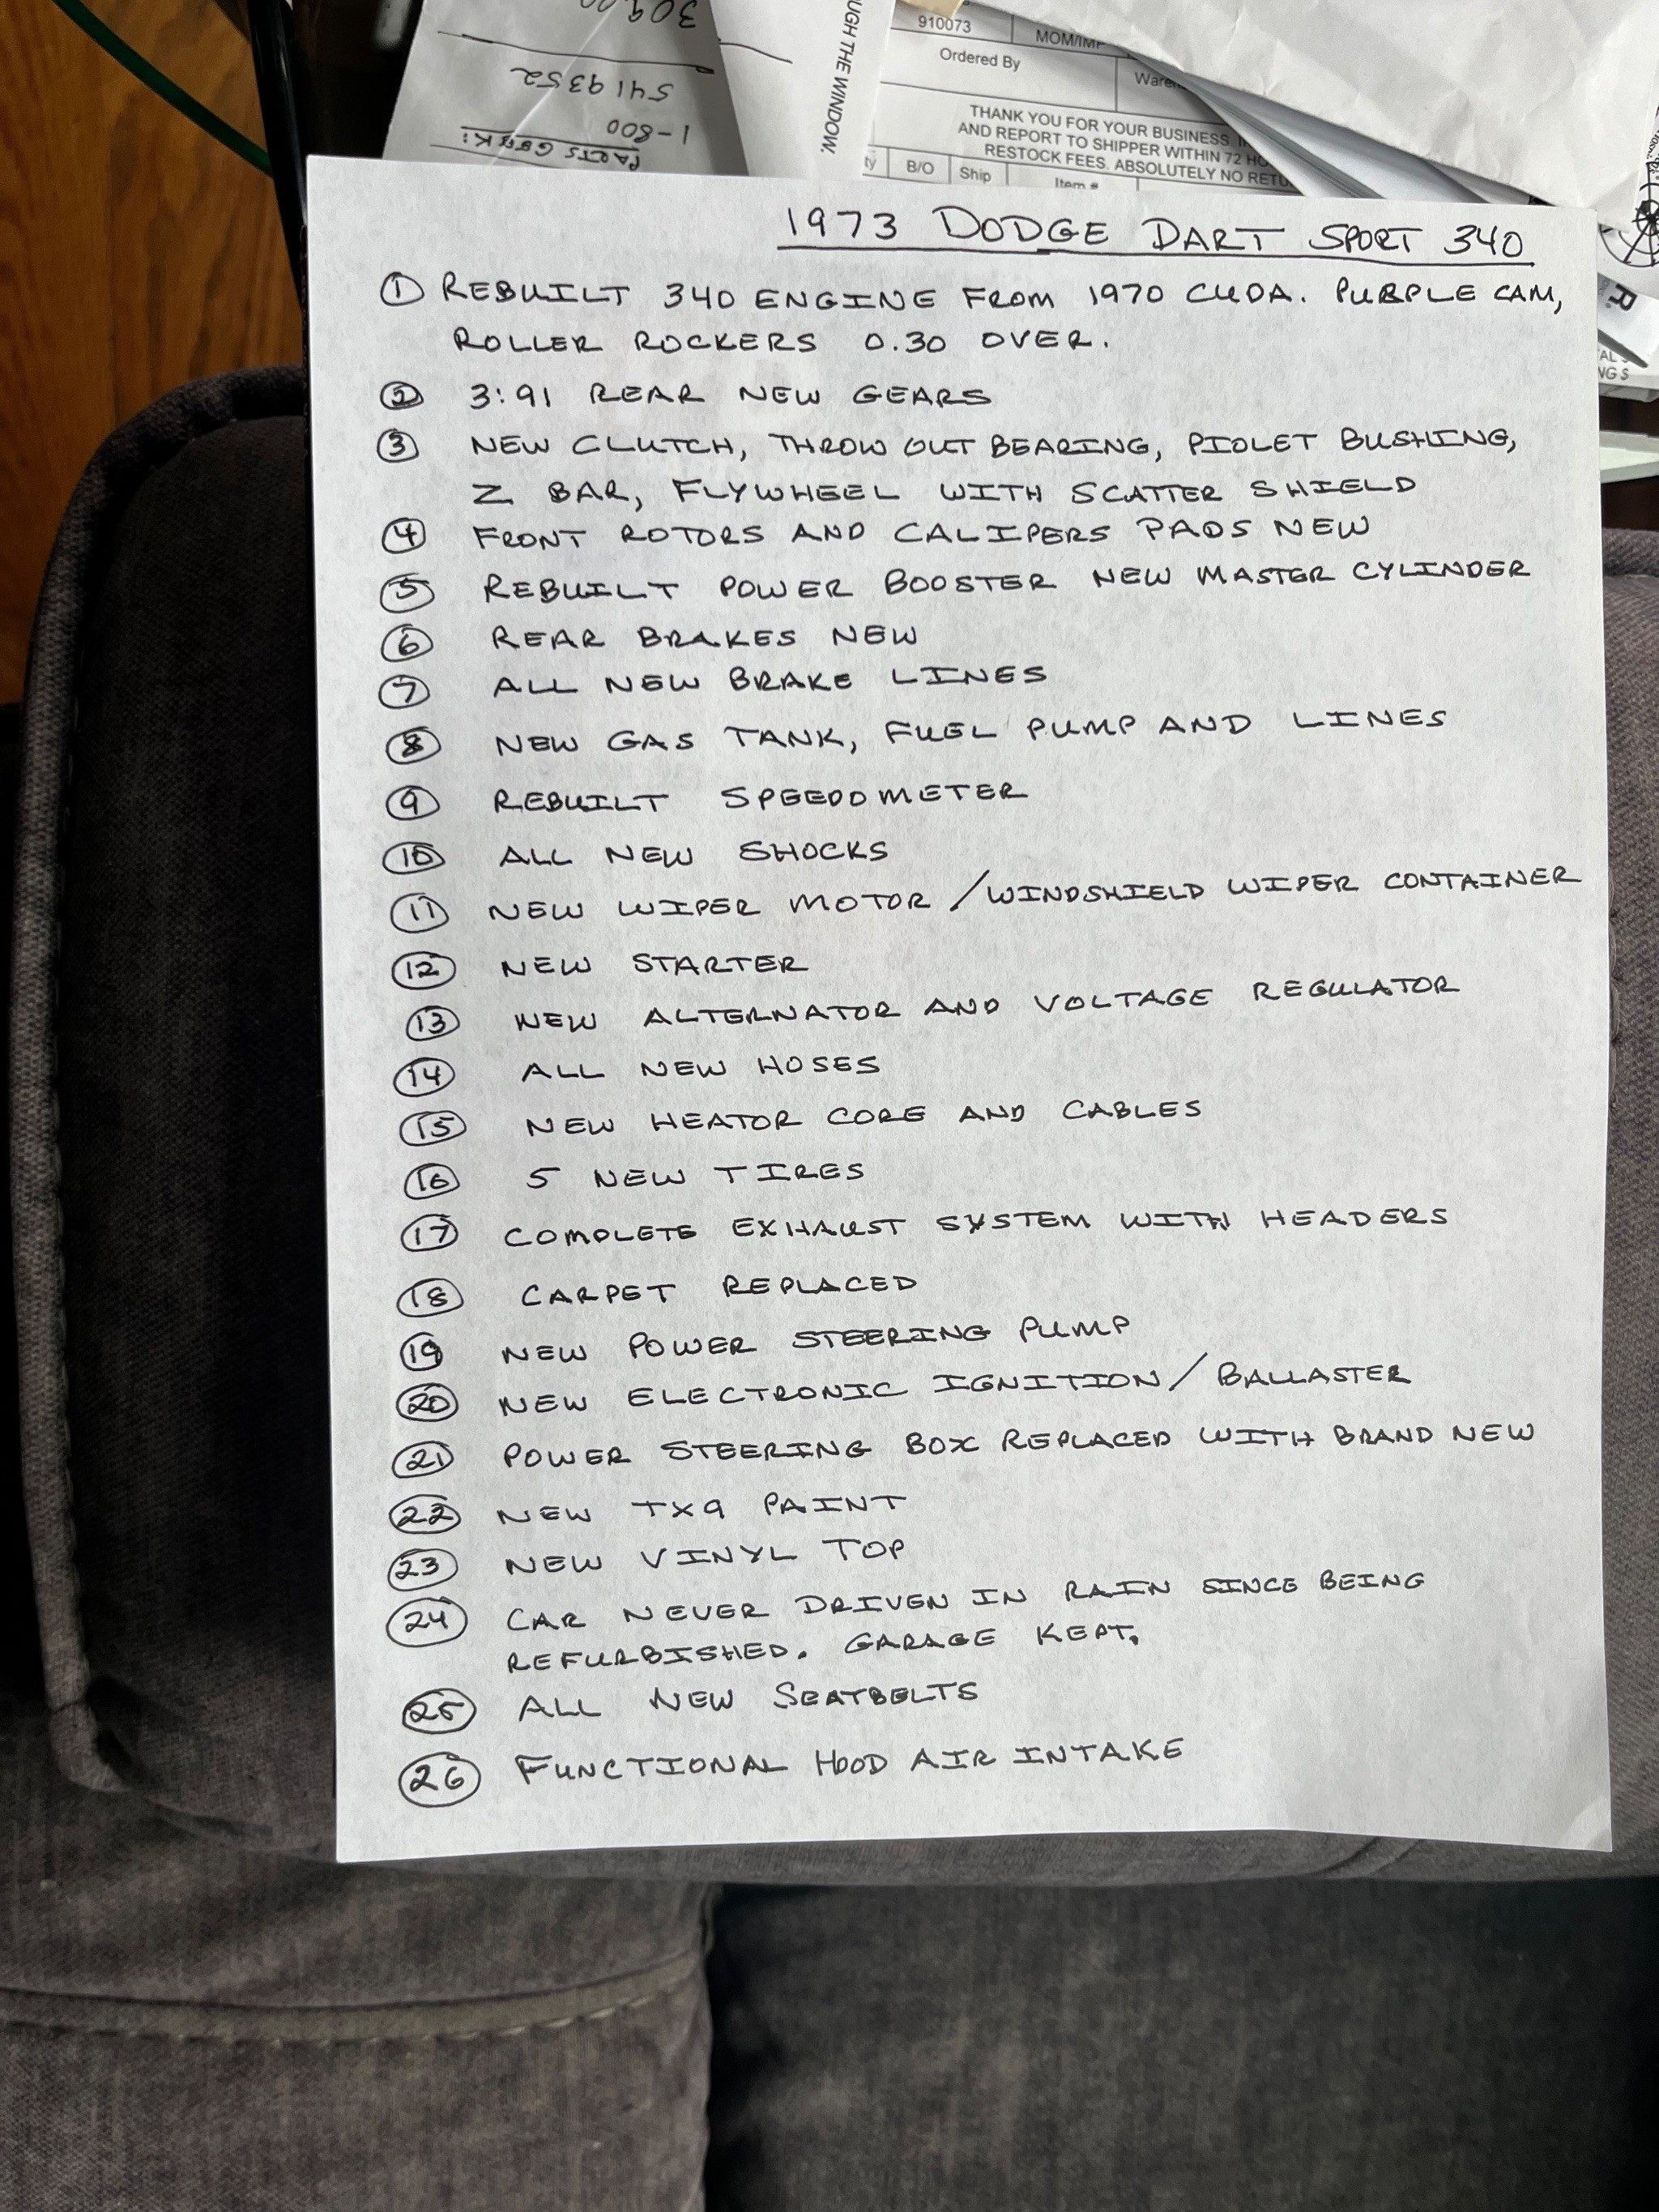 309.00
5419352
1-800
PARTS GEEK:
UGH THE WINDOW.
910073
MOM/IMP
Ordered By
THANK YOU FOR YOUR BUSINESS.
AND REPORT TO SHIPPER WITHIN 72
RESTOCK FEES. ABSOLUTELY NO
B/O Ship Item #
1973 DODGE DART SPORT 340
① REBUILT 340 ENGINE FROM 1970 CUDA. PURPLE CAM,
ROLLER ROCKERS 0.30 OVER.
② 3:91 REAR NEW GEARS
③ NEW CLUTCH, THROW OUT BEARING, PIOLET BUSHING,
Z BAR, FLYWHEEL WITH SCATTER SHIELD
④ FRONT ROTORS AND CALIPERS PADS NEW
⑤ REBUILT POWER BOOSTER NEW MASTER CYLINDER
⑥ REAR BRAKES NEW
⑦ ALL NEW BRAKE LINES
⑧ NEW GAS TANK, FUEL PUMP AND LINES
⑨ REBUILT SPEEDOMETER
⑩ ALL NEW SHOCKS
⑪ NEW WIPER MOTOR / WINDSHIELD WIPER CONTAINER
⑫ NEW STARTER
⑬ NEW ALTERNATOR AND VOLTAGE REGULATOR
⑭ ALL NEW HOSES
⑮ NEW HEATOR CORE AND CABLES
⑯ 5 NEW TIRES
⑰ COMPLETE EXHAUST SYSTEM WITH HEADERS
⑱ CARPET REPLACED
⑲ NEW POWER STEERING PUMP
⑳ NEW ELECTRONIC IGNITION / BALLASTER
㉑ POWER STEERING BOX REPLACED WITH BRAND NEW
㉒ NEW TX9 PAINT
㉓ NEW VINYL TOP
㉔ CAR NEVER DRIVEN IN RAIN SINCE BEING
REFURBISHED. GARAGE KEPT.
㉕ ALL NEW SEATBELTS
㉖ FUNCTIONAL HOOD AIR INTAKE